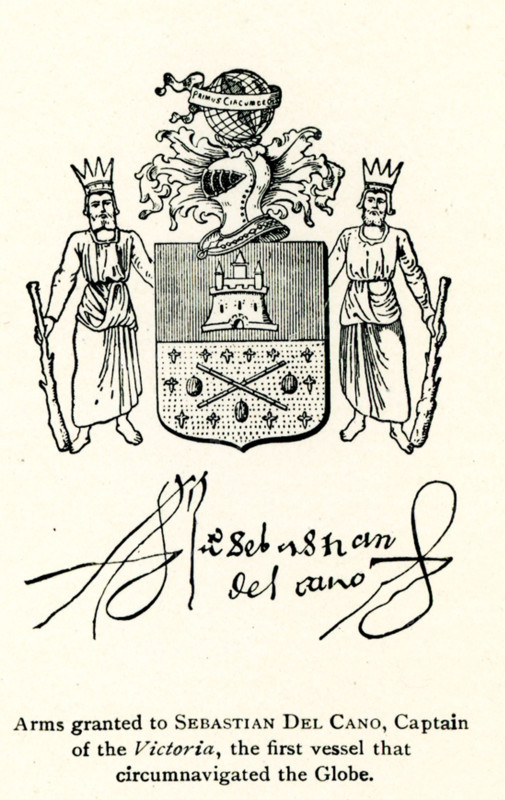 PRIMUS CIRCUMDED
Sebastian
del cano
Arms granted to SEBASTIAN DEL CANO, Captain
of the Victoria, the first vessel that
circumnavigated the Globe.